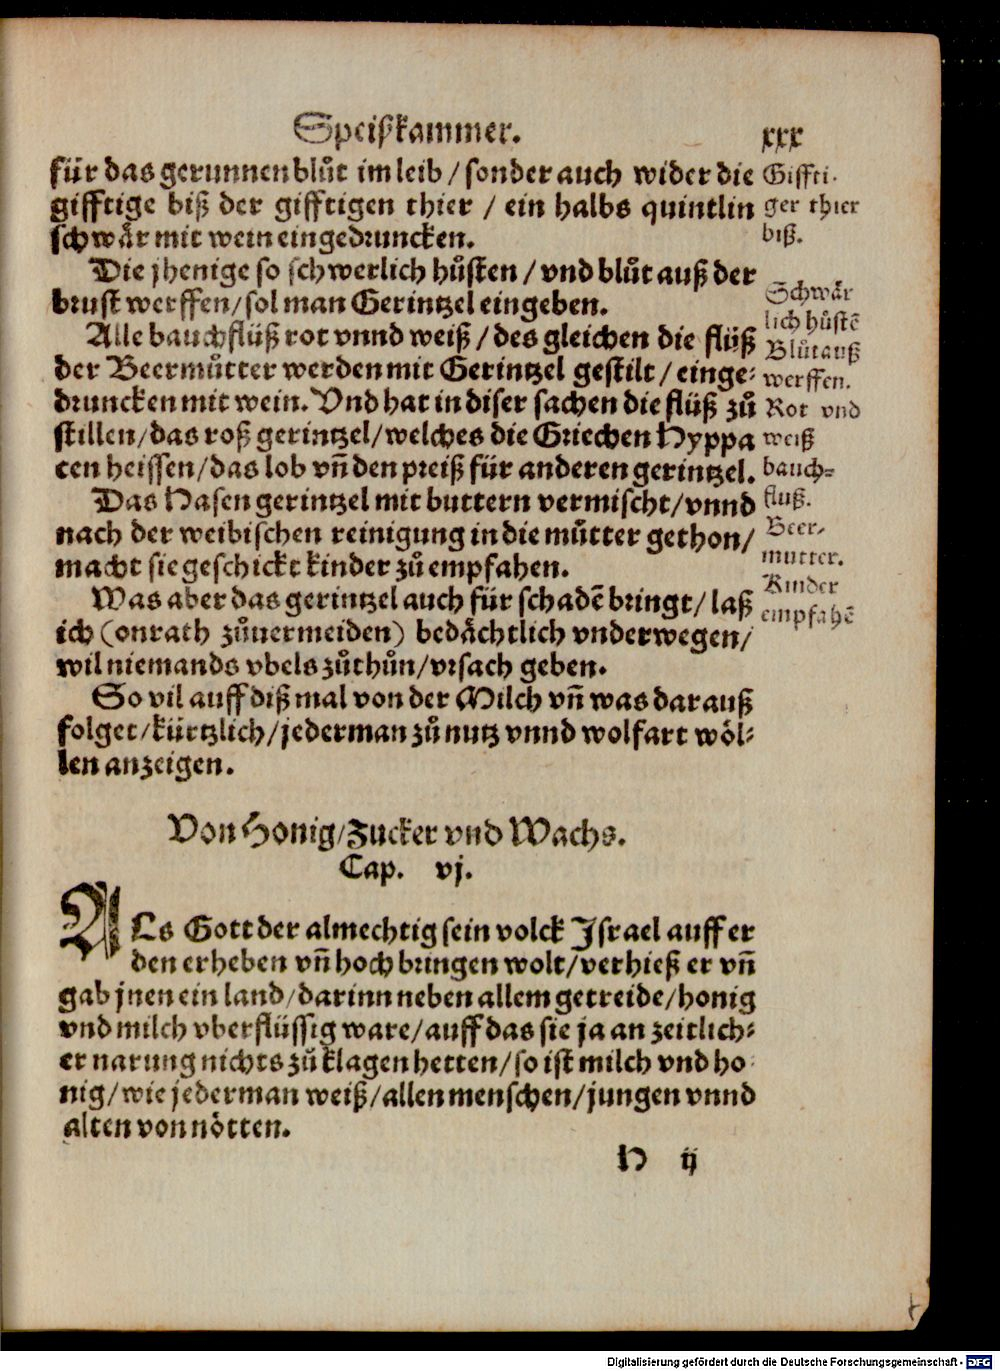 Speißkammer. xxx
für das gerunnen blůt im leib / sonder auch wider die
gifftige biß der gifftigen thier / ein halbs quintlin
schwår mit wein eingedruncken.
Die jhenige so schwerlich hůsten / vnd blůt auß der
brust werffen / sol man Gerintzel eingeben.
Alle bauchflüß rot vnnd weiß / des gleichen die flüß
der Beermůtter werden mit Gerintzel gestilt / einge⸗
druncken mit wein. Vnd hat in diser sachen die flüß zů
stillen / das roß gerintzel / welches die Griechen Hyppa
cen heissen / das lob vñ den preiß für anderen gerintzel.
Das Hasen gerintzel mit buttern vermischt / vnnd
nach der weibischen reinigung in die můtter gethon /
macht sie geschickt kinder zů empfahen.
Was aber das gerintzel auch für schadē bringt / laß
ich (onrath zůuermeiden) bedåchtlich vnderwegen /
wil niemands vbels zůthůn / vrsach geben.
So vil auff diß mal von der Milch vñ was darauß
folget / kürtzlich / jederman zů nutz vnnd wolfart wöl⸗
len anzeigen.
Giffti⸗
ger thier
biß.
Schwår
lich hůstē
Blůt auß
werffen.
Rot vnd
weiß
bauch⸗
fluß.
Beer⸗
mutter.
Kinder
empfahē
Von Honig / Zucker vnd Wachs.
Cap. vj.
ALs Gott der almechtig sein volck Israel auff er
den erheben vñ hoch bringen wolt / verhieß er vñ
gab jnen ein land / darinn neben allem getreide / honig
vnd milch vberflüssig ware / auff das sie ja an zeitlich⸗
er narung nichts zů klagen hetten / so ist milch vnd ho⸗
nig / wie jederman weiß / allen menschen / jungen vnnd
alten von nötten.
H ij
Digitalisierung gefördert durch die Deutsche Forschungsgemeinschaft - DFG